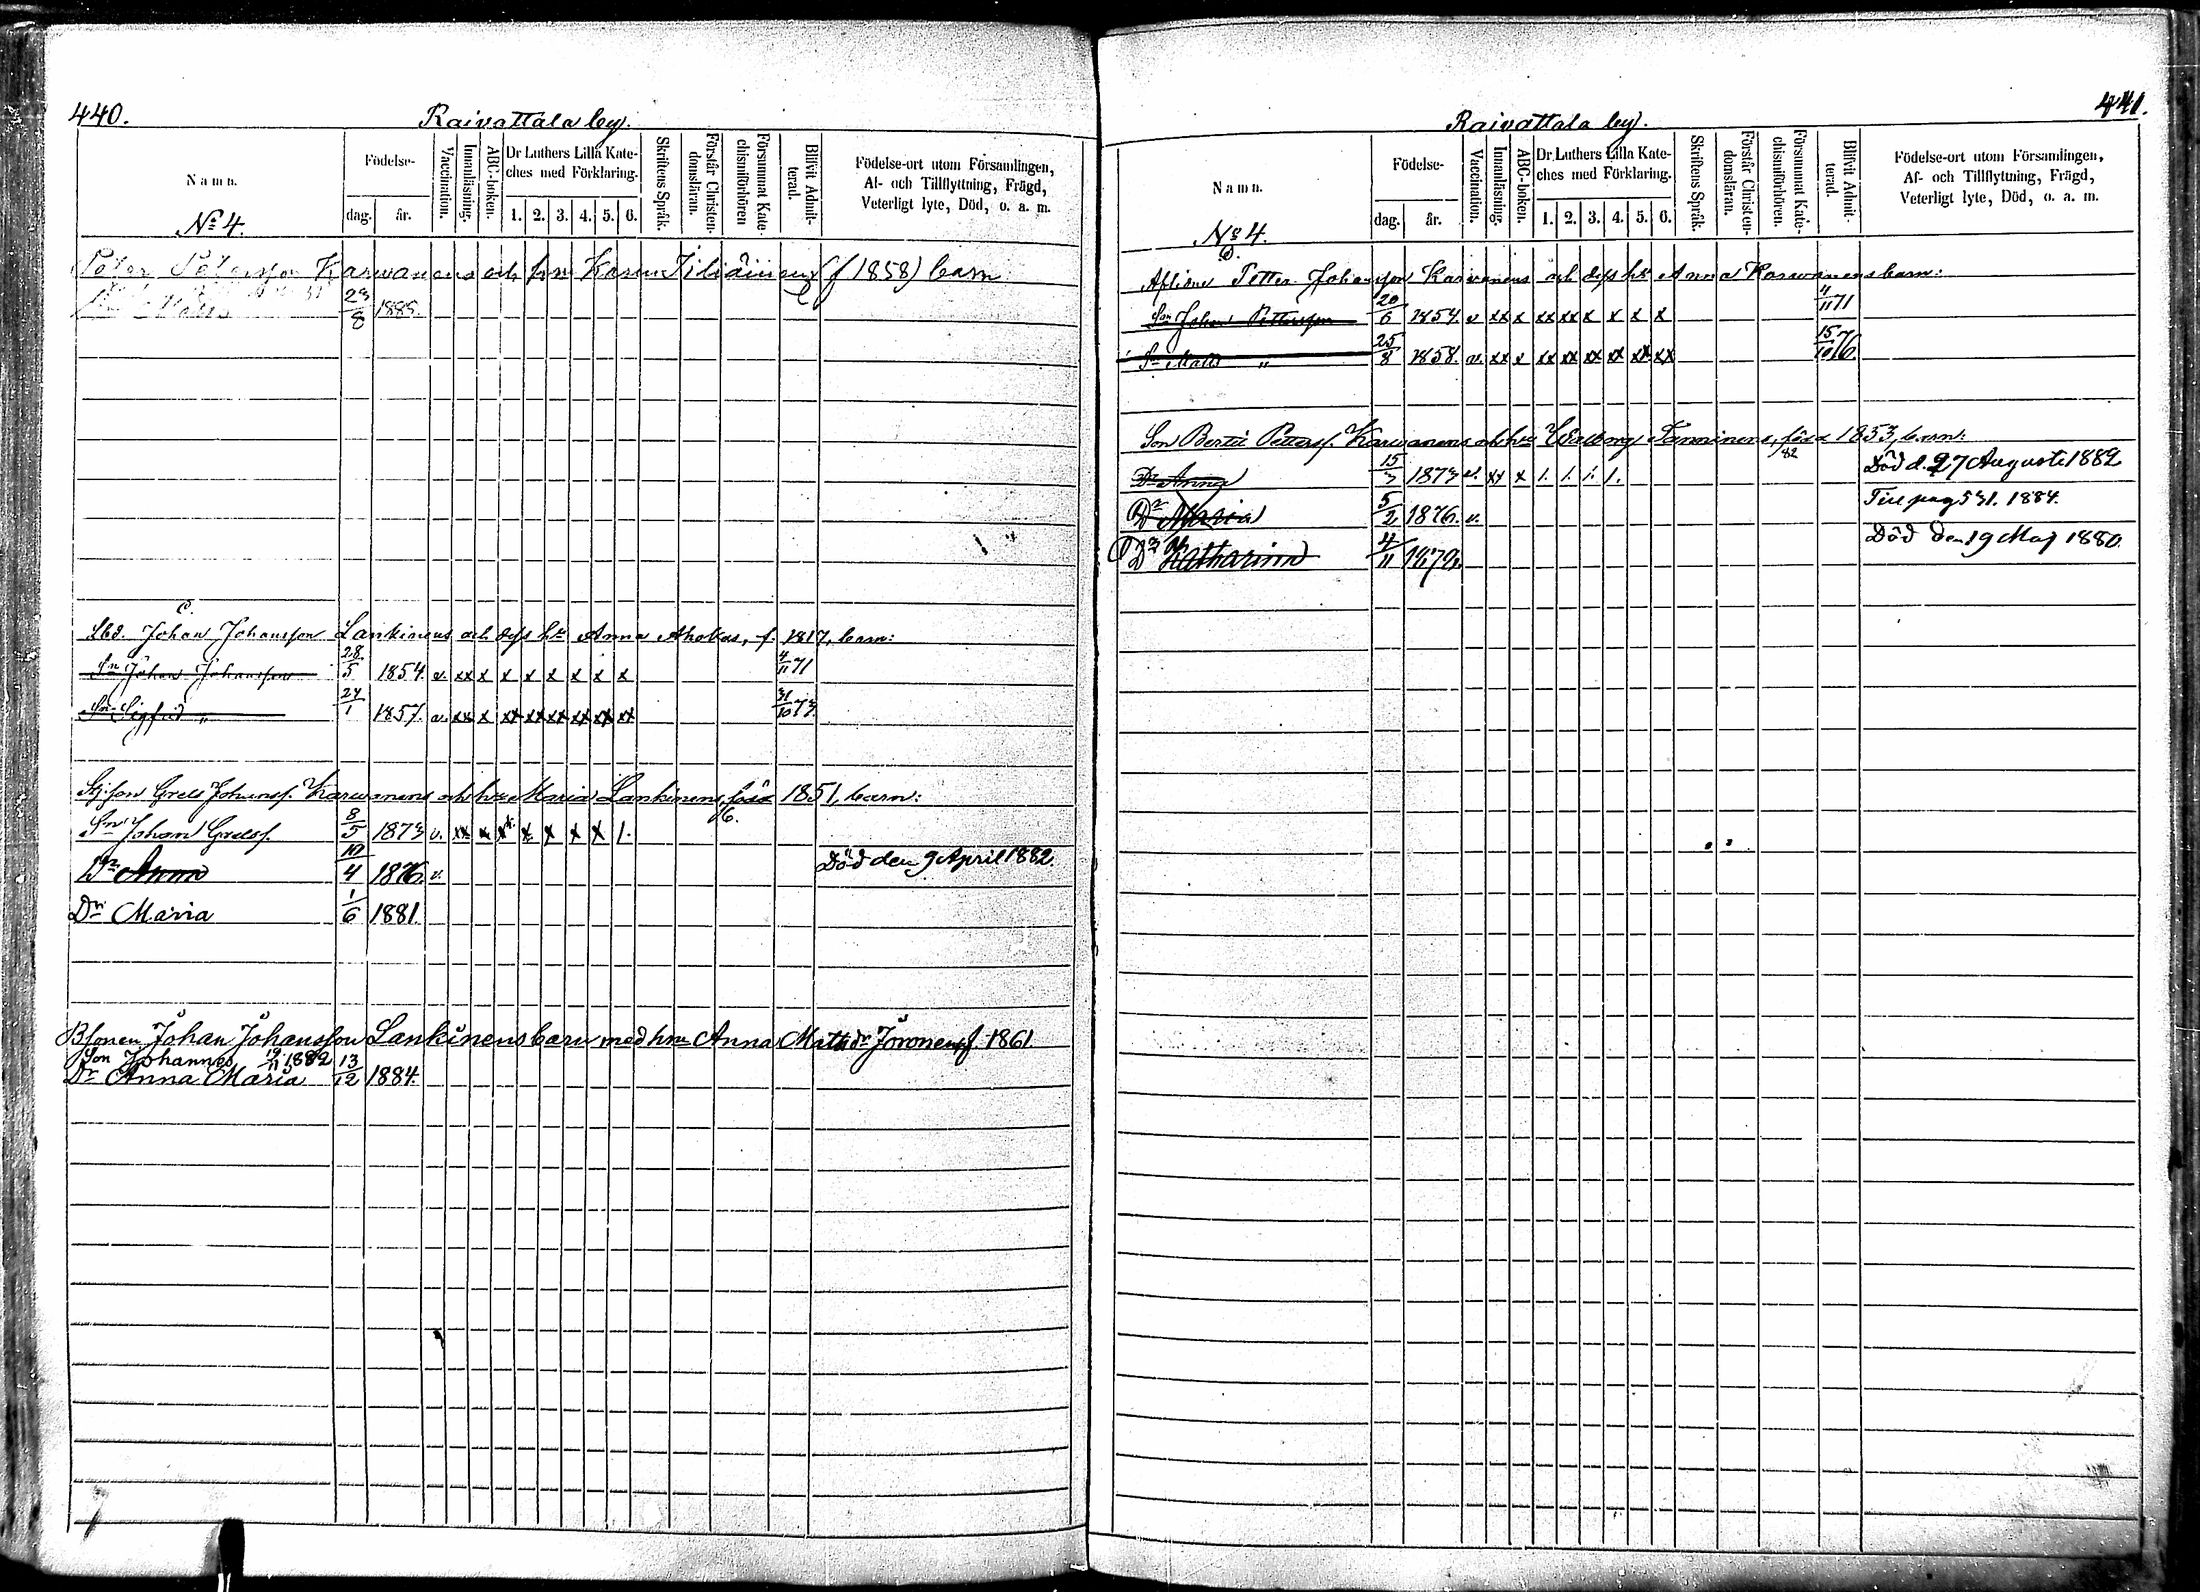 440.
Raivattala by.
Namn.
Födelse-
dag. år.
Vaccination.
Innanläsning.
ABC-boken.
Dr Luthers Lilla Kate-
ches med Förklaring.
1. 2. 3. 4. 5. 6.
Skriftens Språk.
Förstår Christen-
domsläran.
Försummat Kate-
chismiförhören
Blifvit Admit-
terad.
Födelse-ort utom Församlingen,
Af- och Tillflyttning, Frägd,
Veterligt lyte, Död, o. a. m.
No 4.
Peter Petersson Karwanens och hru Karin (f 1858) barn
23/8 1888.
C.
Johan Johansson Lankinens och dess hu Anna Ahokas, f. 1817, barn:
Sn Johan Johansson 28/5 1854. v. xx x x x x x x x 4/11 71
Sn Sigfrid " 24/1 1857. v. xx x xx xx xx xx xx xx 31/10 73
Grels Johanss. Karwanens och hru Maria Lankinens, född 1851, barn:
Sn Johan Grelss. 8/5 1873 v. xx x x x x x x 1.
Dr Anna 10/4 1876. v. Död den 9 April 1882.
Dr Maria 1/6 1881.
Bsonen Johan Johansson Lankinens barn med hru Anna Matts dr Joronen f. 1861
Son Johannes 19/11 1882
Dr Anna Maria 13/12 1884.
441.
Raivattala by.
Namn.
Födelse-
dag. år.
Vaccination.
Innanläsning.
ABC-boken.
Dr Luthers Lilla Kate-
ches med Förklaring.
1. 2. 3. 4. 5. 6.
Skriftens Språk.
Förstår Christen-
domsläran.
Försummat Kate-
chismiförhören.
Blifvit Admit-
terad.
Födelse-ort utom Församlingen,
Af- och Tillflyttning, Frägd,
Veterligt lyte, Död, o. a. m.
No 4.
D.
Aflidne Petter Johansson Karwanens och dess hu Anna Karwanens barn:
Sn Johan Pettersson 20/6 1854. v xx x xx xx x x x x 4/11 71
Sn Matts " 25/8 1858. v. xx x xx xx xx xx xx xx 15/10 76
Son Bertil Petterss. Karwanens och hru Walborg Tanninens, född 1853, barn:
Dr Anna 15/3 1873 v. xx x 1. 1. 1. 1. Död d. 27 Augusti 1882
Dr Maria 5/2 1876. v. Till pag 531. 1884.
Dr Katharina 4/11 1879. Död den 19 Maj 1880.